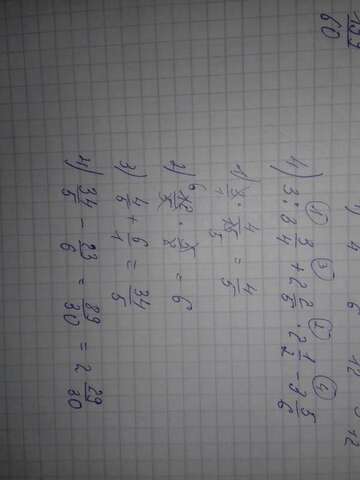 ① ③ ② ④
4) 3 : 3 3/4 + 2 2/5 · 2 1/2 - 3 5/6
1) 3/1 · 4/15 5 = 4/5
2) 6 12/5 · 5/2 = 6
3) 4/5 + 6/1 = 34/5
4) 34/5 - 23/6 = 89/30 = 2 29/30